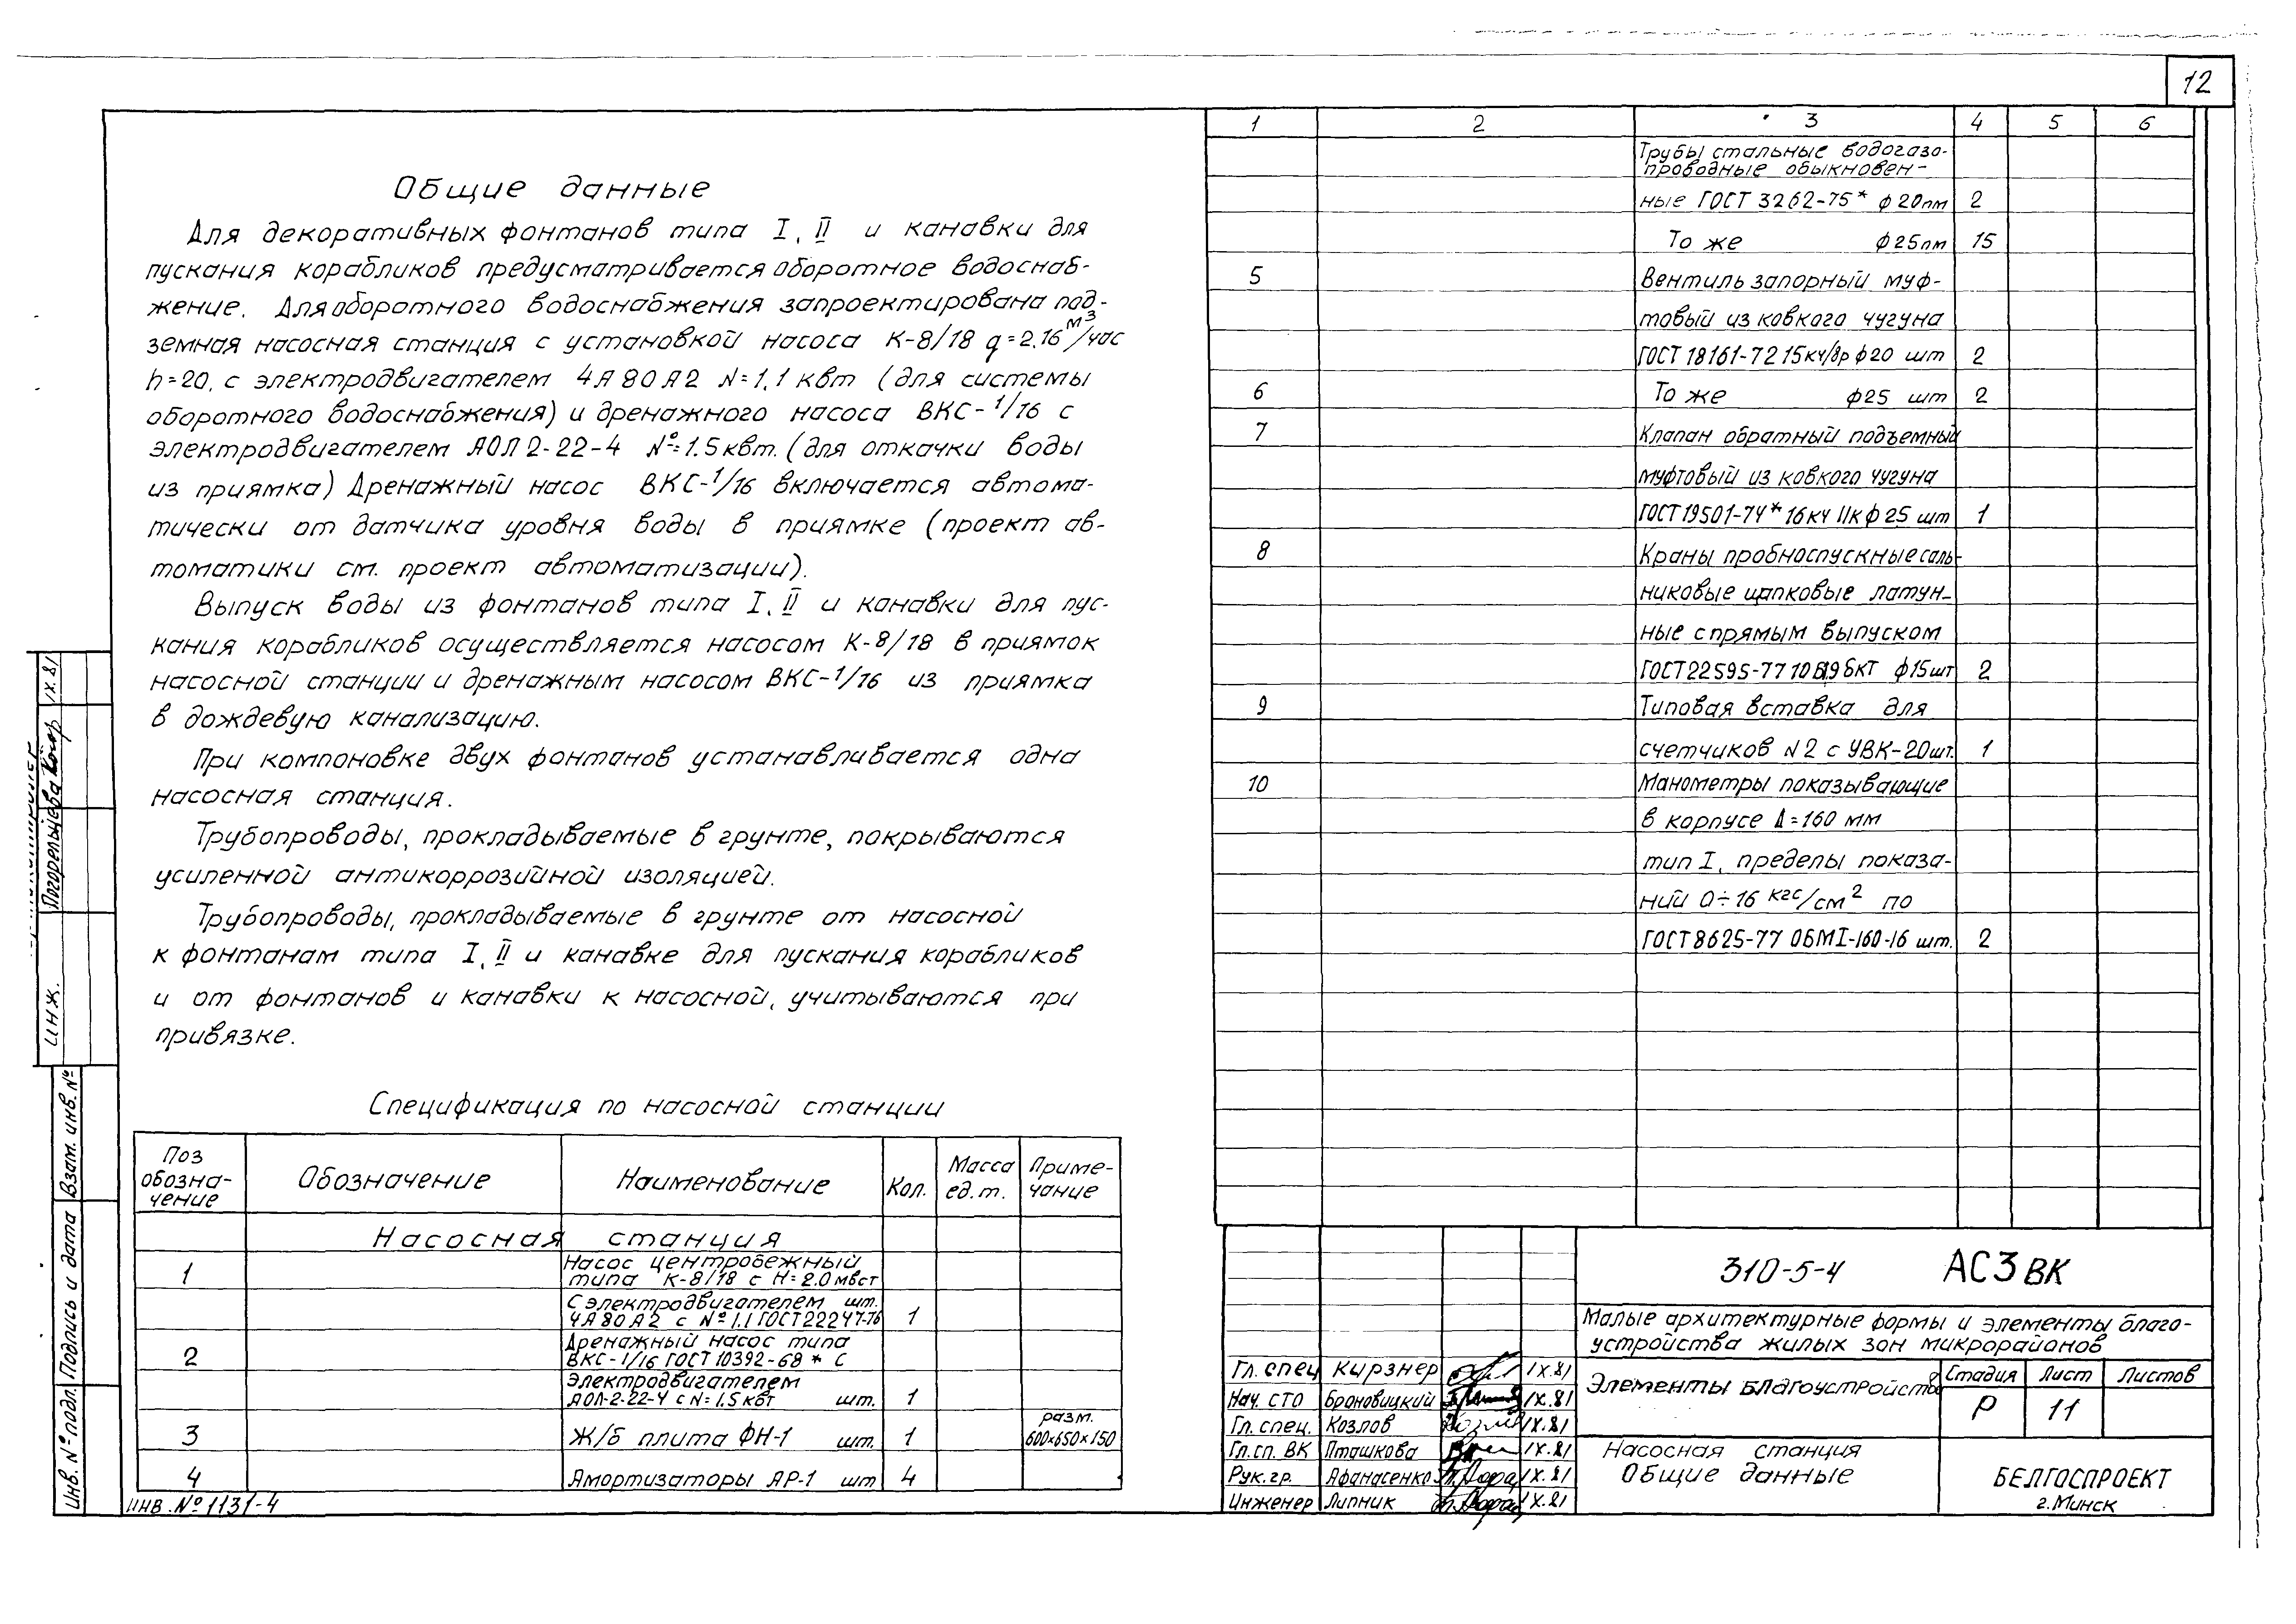 12
Общие данные
Для декоративных фонтанов типа I, II и канавки для
пускания корабликов предусматривается оборотное водоснаб-
жение. Для оборотного водоснабжения запроектирована под-
земная насосная станция с установкой насоса К-8/18 q=2.16 м3/час
h=20, с электродвигателем 4А80А2 N=1,1 квт (для системы
оборотного водоснабжения) и дренажного насоса ВКС-1/16 с
электродвигателем АОЛ2-22-4 №=1.5квт. (для откачки воды
из приямка) Дренажный насос ВКС-1/16 включается автома-
тически от датчика уровня воды в приямке (проект ав-
томатики см. проект автоматизации).
Выпуск воды из фонтанов типа I, II и канавки для пус-
кания корабликов осуществляется насосом К-8/18 в приямок
насосной станции и дренажным насосом ВКС-1/16 из приямка
в дождевую канализацию.
При компоновке двух фонтанов устанавливается одна
насосная станция.
Трубопроводы, прокладываемые в грунте, покрываются
усиленной антикоррозийной изоляцией.
Трубопроводы, прокладываемые в грунте от насосной
к фонтанам типа I, II и канавке для пускания корабликов
и от фонтанов и канавки к насосной, учитываются при
привязке.
Спецификация по насосной станции
Поз обозна-чение Обозначение Наименование Кол. Масса ед.т. Приме-чание
Насосная станция
1 Насос центробежный
типа К-8/18 с Н=2.0мвст
С электродвигателем шт.
4А80А2 с №1,1 ГОСТ22247-76 1
2 Дренажный насос типа
ВКС-1/16 ГОСТ 10392-68* С
электродвигателем
АОЛ-2-22-4 с N=1.5квт шт. 1
3 Ж/б плита ФН-1 шт. 1 разм. 600×650×150
4 Амортизаторы АР-1 шт 4
инв.№1131-4
1 2 3 4 5 6
Трубы стальные водогазо-
проводные обыкновен-
ные ГОСТ 3262-75* ф20пм 2
То же ф25пм 15
5 Вентиль запорный муф-
товый из ковкого чугуна
ГОСТ 18161-72 15кч/8р ф20 шт 2
6 То же ф25 шт 2
7 Клапан обратный подъемный
муфтовый из ковкого чугуна
ГОСТ19501-74* 16кч 11к ф25 шт 1
8 Краны пробноспускные саль-
никовые цапковые латун-
ные с прямым выпуском
ГОСТ22595-77 10Б19бкт ф15шт 2
9 Типовая вставка для
счетчиков N2 с УВК-20шт. 1
10 Манометры показывающие
в корпусе Д=160 мм
тип I, пределы показа-
ний 0÷16 кгс/см2 по
ГОСТ8625-77 ОБМI-160-16 шт. 2
310-5-4 АС3 ВК
Малые архитектурные формы и элементы благо-
устройства жилых зон микрорайонов
Гл. спец Кирзнер IX.81
Нач. СТО Броновицкий IX.81
Гл. спец. Козлов IX.81
Гл. сп. ВК Пташкова IX.81
Рук. гр. Афанасенко IX.81
Инженер Липник IX.81
Элементы благоустройства
Стадия Лист Листов
Р 11
Насосная станция
Общие данные
БЕЛГОСПРОЕКТ
г. Минск
инж. Погорельцева IX.81
Взам. инв. №
Подпись и дата
Инв. № подл.